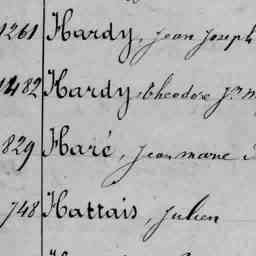 1261 Hardy, Jean Joseph
1482 Hardy théodore Jn
829 Haré, Jean marie
748 Hattais, Julien